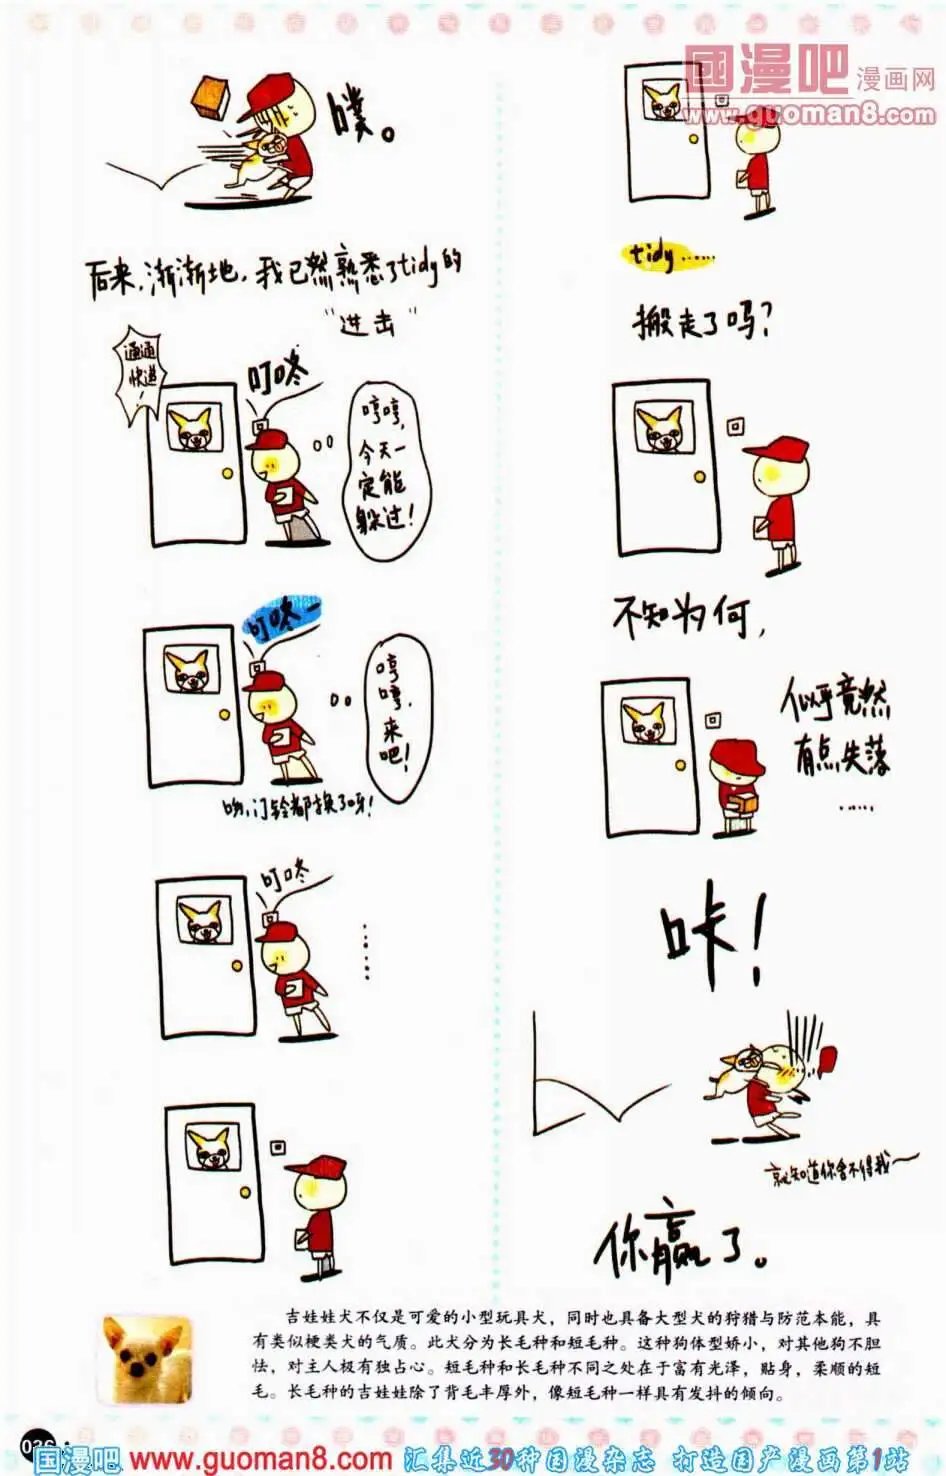 國漫吧漫画网
www.guoman8.com
噗。
后来,渐渐地,我已然熟悉了tidy的
"进击"
通通
快递
!
叮咚
哼哼,
今天一
定能
躲过!
叮咚—
哼
哼,
来
吧!
哟,门铃都换了呀!
叮咚
……
tidy……
搬走了吗?
不知为何,
似乎竟然
有点失落
……
咔!
就知道你舍不得我～
你赢了。
吉娃娃犬不仅是可爱的小型玩具犬，同时也具备大型犬的狩猎与防范本能，具
有类似梗类犬的气质。此犬分为长毛种和短毛种。这种狗体型娇小，对其他狗不胆
怯，对主人极有独占心。短毛种和长毛种不同之处在于富有光泽，贴身，柔顺的短
毛。长毛种的吉娃娃除了背毛丰厚外，像短毛种一样具有发抖的倾向。
国漫吧 www.guoman8.com 汇集近30种国漫杂志 打造国产漫画第1站